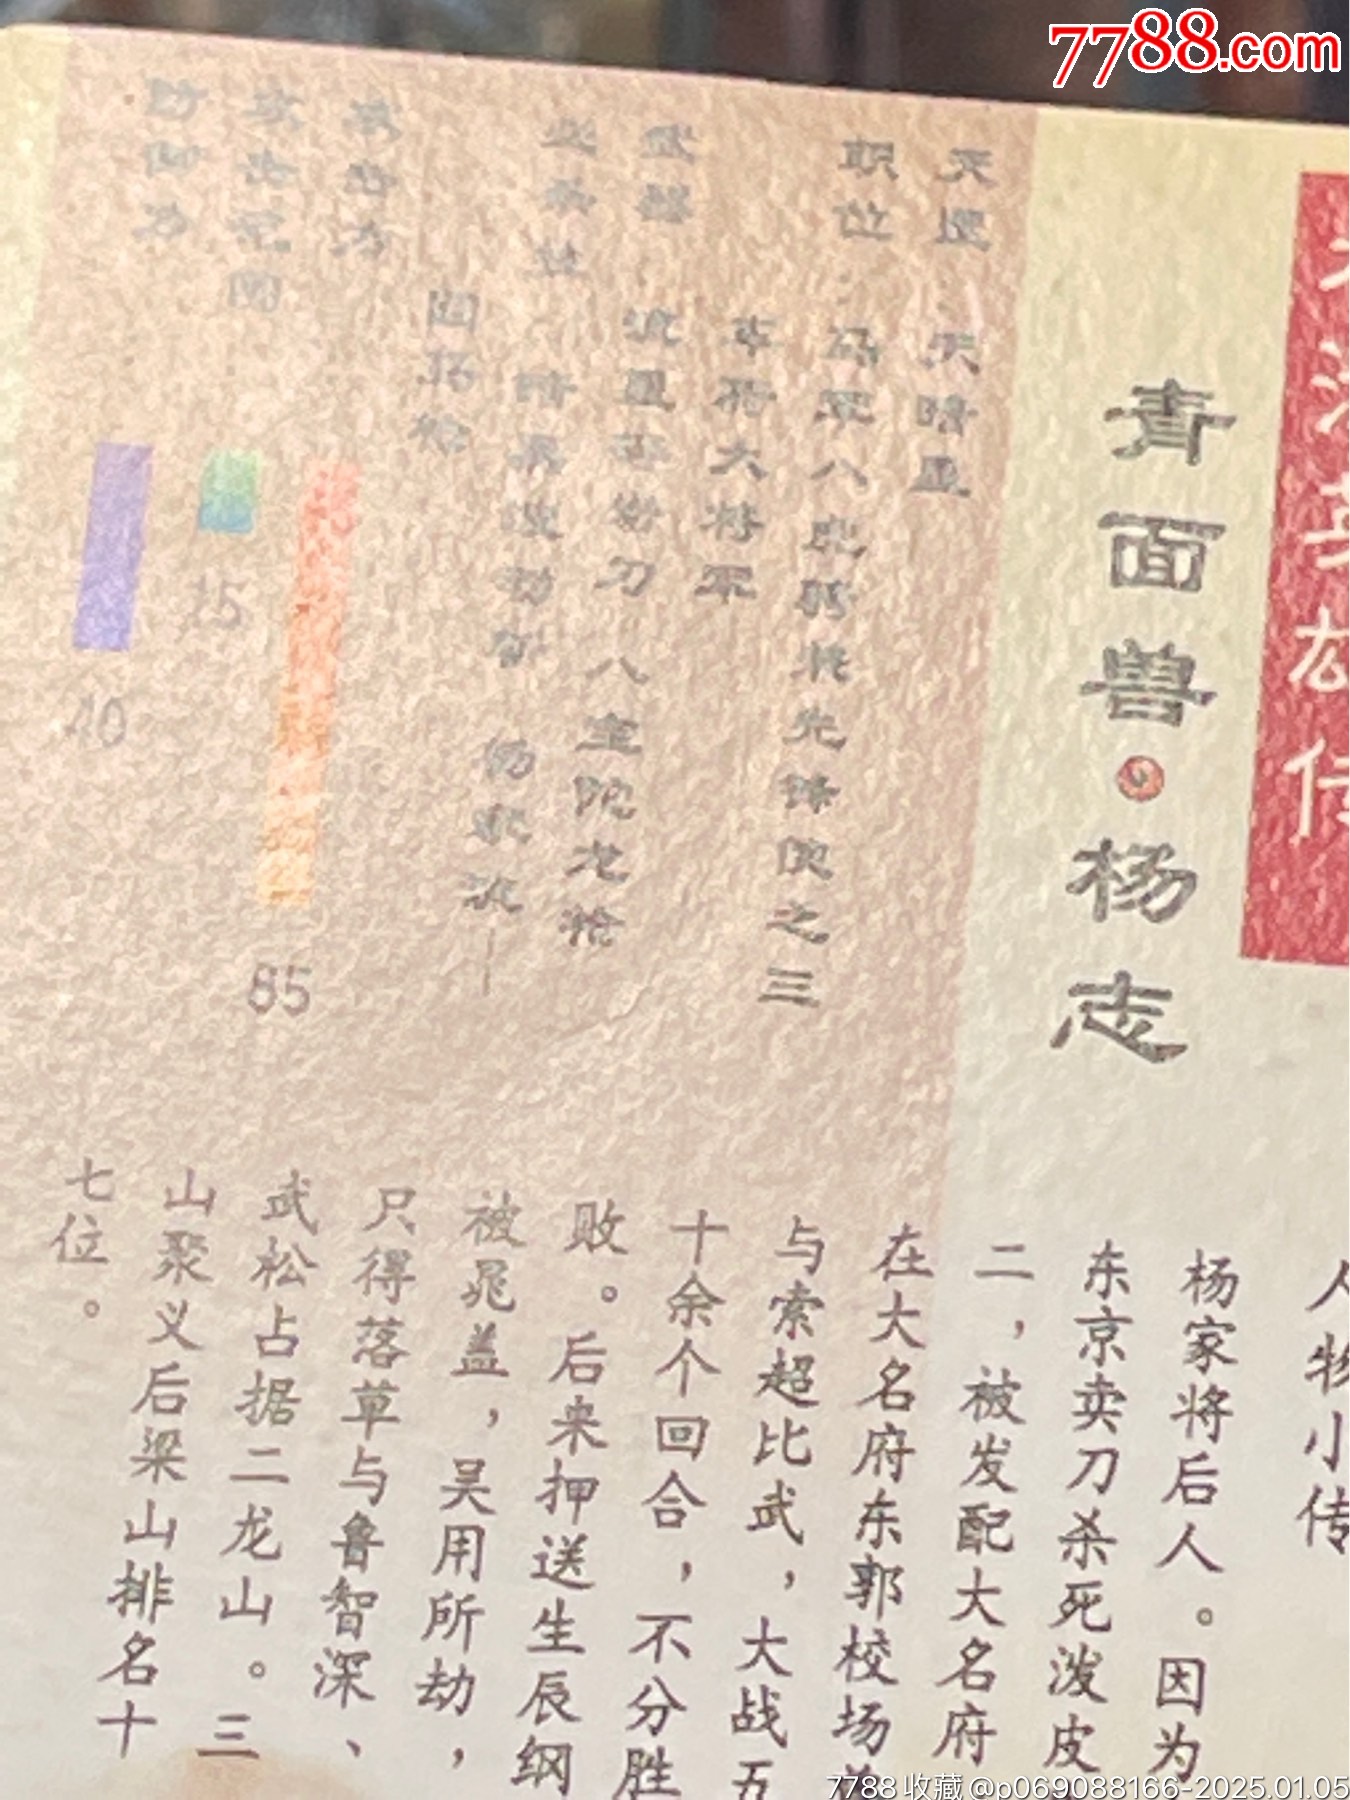 7788.com
水浒英雄传
青面兽·杨志
天罡：天暗星
职位：马军八骠骑兼先锋使之三
武器
八宝陀龙枪
必杀技
攻击力
85
攻击范围
15
防御力
40
人物小传
杨家将后人。因为
东京卖刀杀死泼皮
二，被发配大名府
在大名府东郭校场
与索超比武，大战五
十余个回合，不分胜
败。后来押送生辰纲
被晁盖，吴用所劫，
只得落草与鲁智深、
武松占据二龙山。三
山聚义后梁山排名十
七位。
7788收藏@p069088166-2025.01.05